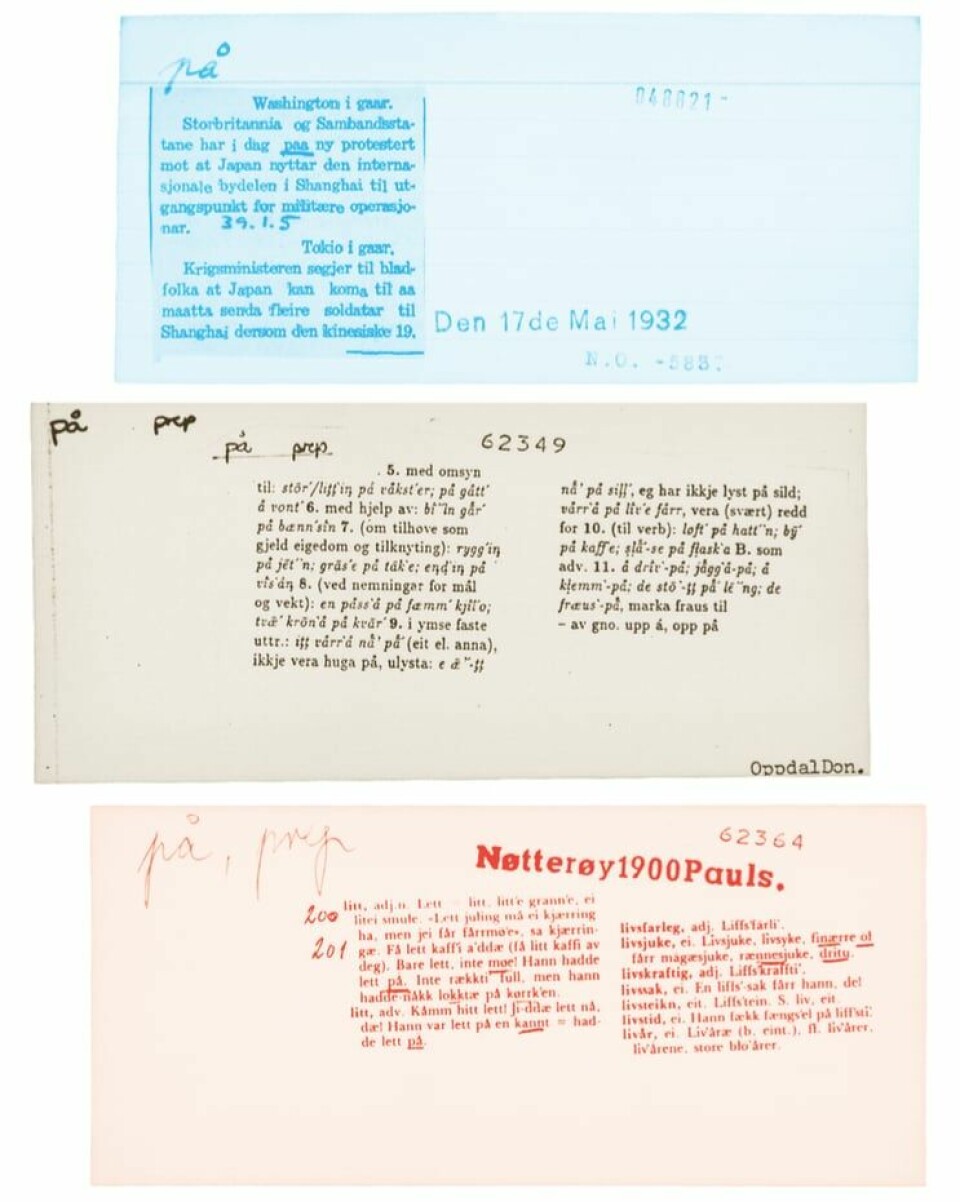 på
048821-
Washington i gaar.
Storbritannia og Sambandssta-
tane har i dag paa ny protestert
mot at Japan nyttar den interna-
sjonale bydelen i Shanghai til ut-
gangspunkt for militære operasjo-
nar. 39.1.5
Tokio i gaar.
Krigsministeren segjer til blad-
folka at Japan kan koma til aa
maatta senda fleire soldatar til
Shanghai dersom den kinesiske 19.
Den 17de Mai 1932
N.O. -585
på prep
på prep.
62349
5. med omsyn
til: på våkst'er; på gått'
å vont' 6. med hjelp av: bi''ln går'
på bænn'sin 7. (om tilhove som
gjeld eigedom og tilknyting): rygg'iƞ
på jét''n; grås'e på tåk'e; på
8. (ved nemningar for mål
og vekt): en påss'å på fæmm' kjil'o;
tvæ' krön'å på kvår' 9. i ymse faste
uttr.: vårr'å nå' på' (eit el. anna),
ikkje vera huga på, ulysta: e
nå' på eg har ikkje lyst på sild;
vårr'å på liv'e fårr, vera (svært) redd
for 10. (til verb): løft' på hatt''n; bÿ'
på kaff'e; slå'-se på flask'a B. som
adv. 11. å driv'-på; jågg'å-på; å
klemm'-på; de på' lé''ng; de
fræus'-på, marka fraus til
– av gno. upp á, opp på
OppdalDon.
på, prep
62364
Nøtterøy1900Pauls.
200
201
litt, adj.n. Lett = litt, litt'e grann'e, ei
litei smule. «Lett juling må ei kjærring
ha, men jei får fårrmo'e», sa kjærrin-
gæ. Få lett kaff'i a'ddæ (få litt kaffi av
deg). Bare lett, inte moe! Hann hadde
lett på. Inte rækkti full, men hann
hadde nåkk lokktæ på korrk'en.
litt, adv. Kåmm hitt lett! Ji-ddæ lett nå,
dæ! Hann var lett på en kannt = had-
de lett på.
livsfarleg, adj. Liffs'farli'.
livsjuke, ei. Livsjuke, livsyke, finærre ol
fårr magæsjuke, rænnesjuke, dritu.
livskraftig, adj. Liffs'kraffti'.
livssak, ei. En liffs'-sak fårr hann, de!
livsteikn, eit. Liffs'tein. S. liv, eit.
livstid, ei. Hann fækk fængs'el på liff'sti'.
livår, ei. Liv'åræ (b. eint.), fl. liv'årer,
liv'årene, store blo'årer.